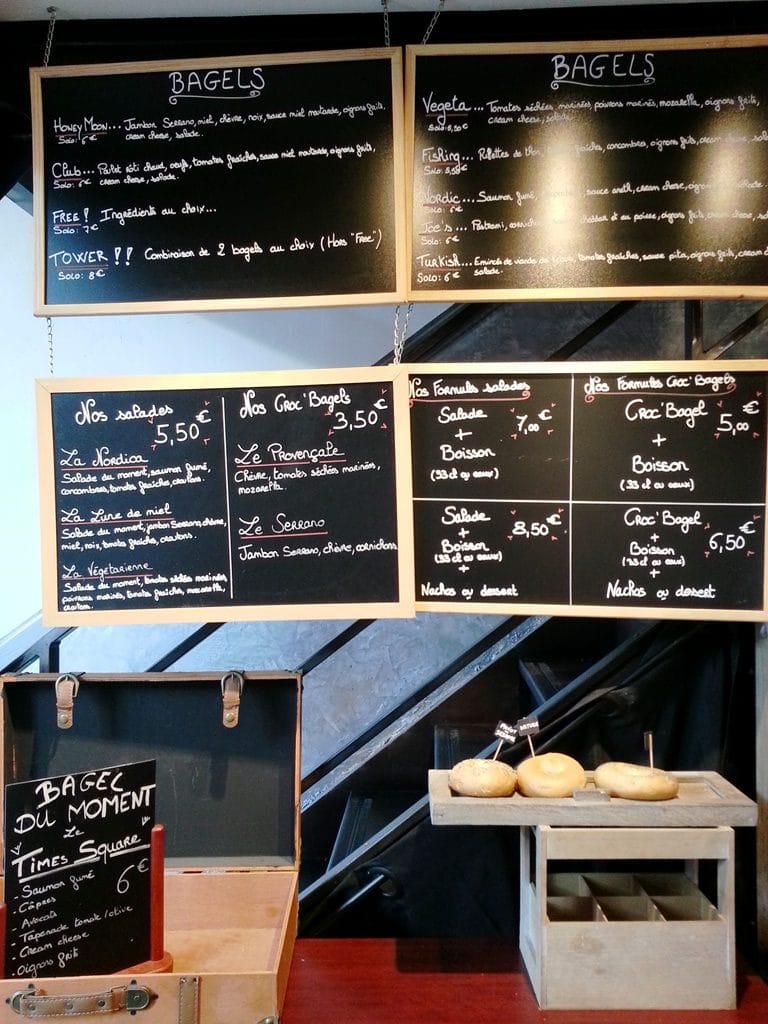 BAGELS
Honey Moon... Jambon Serrano, miel, chèvre, noix, sauce miel moutarde, oignons frits,
Solo: 6€ cream cheese, salade.
Club... Poulet rôti chaud, oeufs, tomates fraîches, sauce miel moutarde, oignons frits,
Solo: 6€ cream cheese, salade.
FREE! Ingrédients au choix...
Solo: 7€
TOWER!! Combinaison de 2 bagels au choix (Hors "Free")
Solo: 8€
BAGELS
Vegeta... Tomates séchées marinées, poivrons marinés, mozarella, oignons frits,
Solo: 5,50€ cream cheese, salade.
Fishing... Rillettes de thon, fraîches, concombres, oignons frits, cream cheese,
Solo: 5,50€
Nordic... Saumon fumé, sauce aneth, cream cheese, oignons salade.
Solo: 6€
Joe's... Pastrami, cheddar et au poivre, oignons frits, cream cheese,
Solo: 6€
Turkish... Emincés de viande de tomates fraîches, sauce pita, oignons frits, cream
Solo: 6€ salade.
Nos salades
5,50€
La Nordica
Salade du moment, saumon fumé,
concombres, tomates fraîches, croutons.
La Lune de miel
Salade du moment, jambon Serrano, chèvre,
miel, noix, tomates fraîches, croutons.
La Végétarienne
Salade du moment, tomates séchées marinées,
poivrons marinés, tomates fraîches, mozzarella,
croutons.
Nos Croc'Bagels
3,50€
Le Provençale
Chèvre, tomates séchées marinées,
mozarella.
Le Serrano
Jambon Serrano, chèvre, cornichons
Nos Formules salades
Salade 7,00€
+
Boisson
(33 cl ou eaux)
Nos Formules Croc'Bagels
Croc'Bagel 5,00€
+
Boisson
(33 cl ou eaux)
Salade 8,50€
+
Boisson
(33 cl ou eaux)
+
Nachos ou dessert
Croc'Bagel 6,50€
+
Boisson
(33 cl ou eaux)
+
Nachos ou dessert
PAVOT
SÉSAME
NATURE
BAGEL
DU MOMENT
Le
Times Square
6€
- Saumon fumé
- Câpres
- Avocats
- Tapenade tomate/olive
- Cream cheese
- Oignons frits